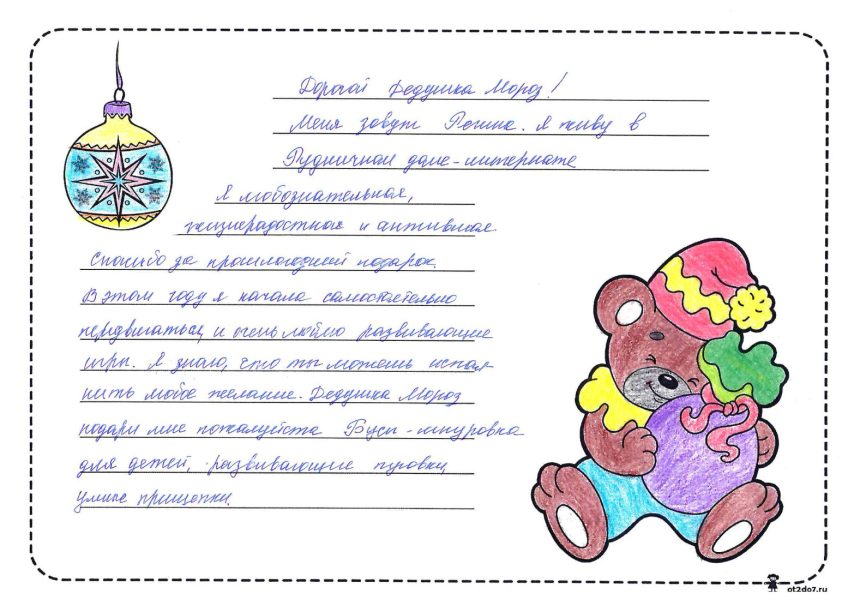 Дорогой Дедушка Мороз!
Меня зовут Регина. Я живу в
Рудничном доме-интернате
Я любознательная,
жизнерадостная и активная
Спасибо за прошлогодний подарок.
В этом году я начала самостоятельно
передвигаться, и очень люблю развивающие
игры. Я знаю, что ты можешь испол
нить любое желание. Дедушка Мороз
подари мне пожалуйста Бусы-шнуровка
для детей, развивающие пуговки,
умные прищепки.
ot2do7.ru